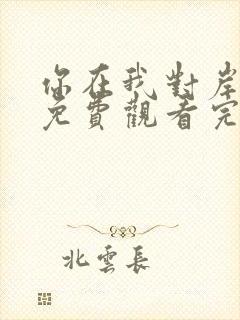 你在我對岸
免費觀看完
北雲長